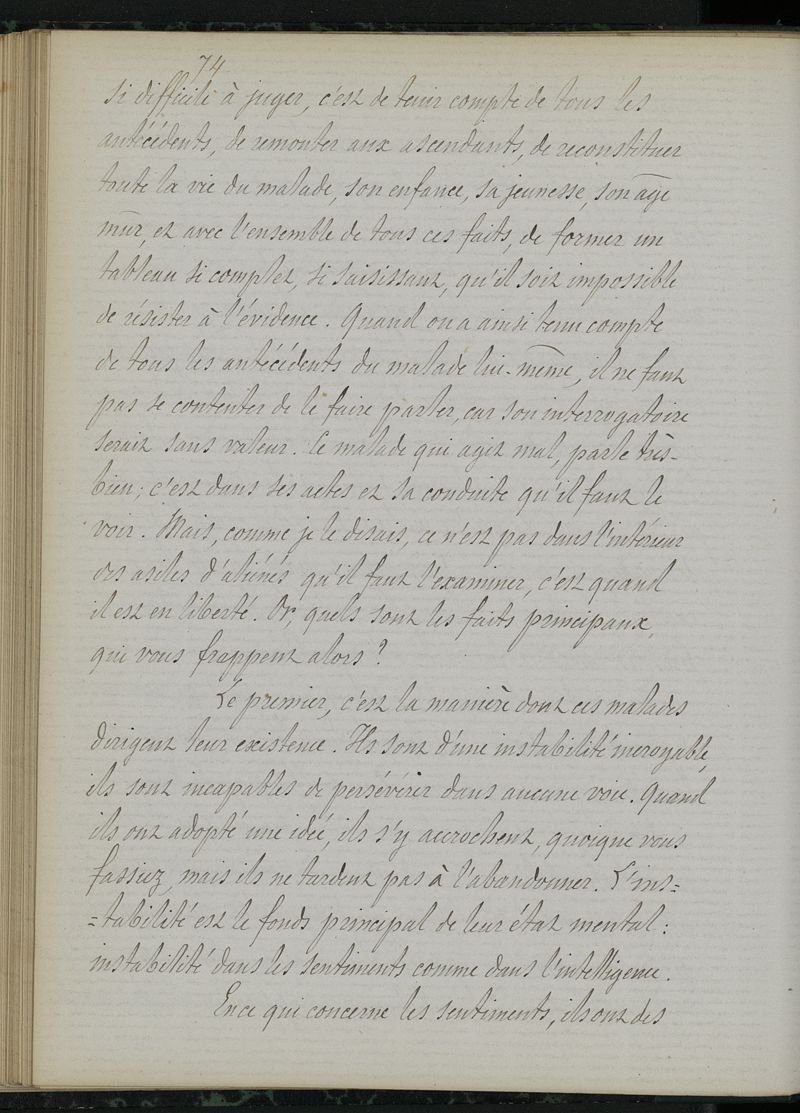 74
si difficile à juger, c'est de tenir compte de tous les
antécédents, de remonter aux ascendants, de reconstituer
toute la vie du malade, son enfance, sa jeunesse, son âge
mûr, et avec l'ensemble de tous ces faits, de former un
tableau si complet, si saisissant, qu'il soit impossible
de résister à l'évidence. Quand on a ainsi tenu compte
de tous les antécédents du malade lui-même, il ne faut
pas se contenter de le faire parler, car son interrogatoire
serait sans valeur. Ce malade qui agit mal, parle très-
bien; c'est dans ses actes et sa conduite qu'il faut le
voir. Mais, comme je le disais, ce n'est pas dans l'intérieur
des asiles d'aliénés qu'il faut l'examiner, c'est quand
il est en liberté. Or, quels sont les faits principaux,
qui vous frappent alors?
Le premier, c'est la manière dont ces malades
dirigent leur existence. Ils sont d'une instabilité incroyable,
ils sont incapables de persévérer dans aucune voie. Quand
ils ont adopté une idée, ils s'y accrochent, quoique vous
fassiez, mais ils ne tardent pas à l'abandonner. L'ins=
=tabilité est le fonds principal de leur état mental:
instabilité dans les sentiments comme dans l'intelligence.
En ce qui concerne les sentiments, ils ont des